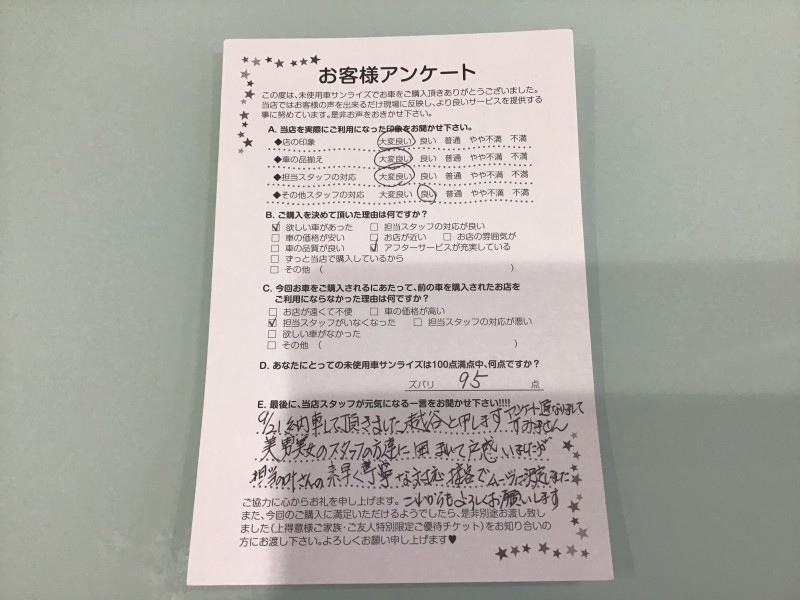 お客様アンケート
この度は、未使用車サンライズでお車をご購入頂きありがとうございました。
当店ではお客様の声を出来るだけ現場に反映し、より良いサービスを提供する
事に努めています。是非お声をおきかせ下さい。
A. 当店を実際にご利用になった印象をお聞かせ下さい。
◆店の印象 大変良い 良い 普通 やや不満 不満
◆車の品揃え 大変良い 良い 普通 やや不満 不満
◆担当スタッフの対応 大変良い 良い 普通 やや不満 不満
◆その他スタッフの対応 大変良い 良い 普通 やや不満 不満
B. ご購入を決めて頂いた理由は何ですか?
☑ 欲しい車があった □ 担当スタッフの対応が良い
□ 車の価格が安い □ お店が近い □ お店の雰囲気が
□ 車の品質が良い ☑ アフターサービスが充実している
□ ずっと当店で購入しているから
□ その他 ( )
C. 今回お車をご購入されるにあたって、前の車を購入されたお店を
ご利用にならなかった理由は何ですか?
□ お店が遠くて不便 □ 車の価格が高い
☑ 担当スタッフがいなくなった □ 担当スタッフの対応が悪い
□ 欲しい車がなかった
□ その他 ( )
D. あなたにとっての未使用車サンライズは100点満点中、何点ですか?
ズバリ 95 点
E. 最後に、当店スタッフが元気になる一言をお聞かせ下さい!!!!
9/21 納車して頂きました越谷と申します アンケート遅くなりまして
すみません
美男美女のスタッフの方達に囲まれて戸惑いましたが
担当の叶さんの素早く丁寧な対応、接客でスムーズに決まりました
これからもよろしくお願いします
ご協力に心からお礼を申し上げます。
また、今回のご購入に満足いただけるようでしたら、是非別途お渡し致し
ました(上得意様ご家族・ご友人特別限定ご優待チケット)をお知り合いの
方にお渡し下さい。よろしくお願い申し上げます♥